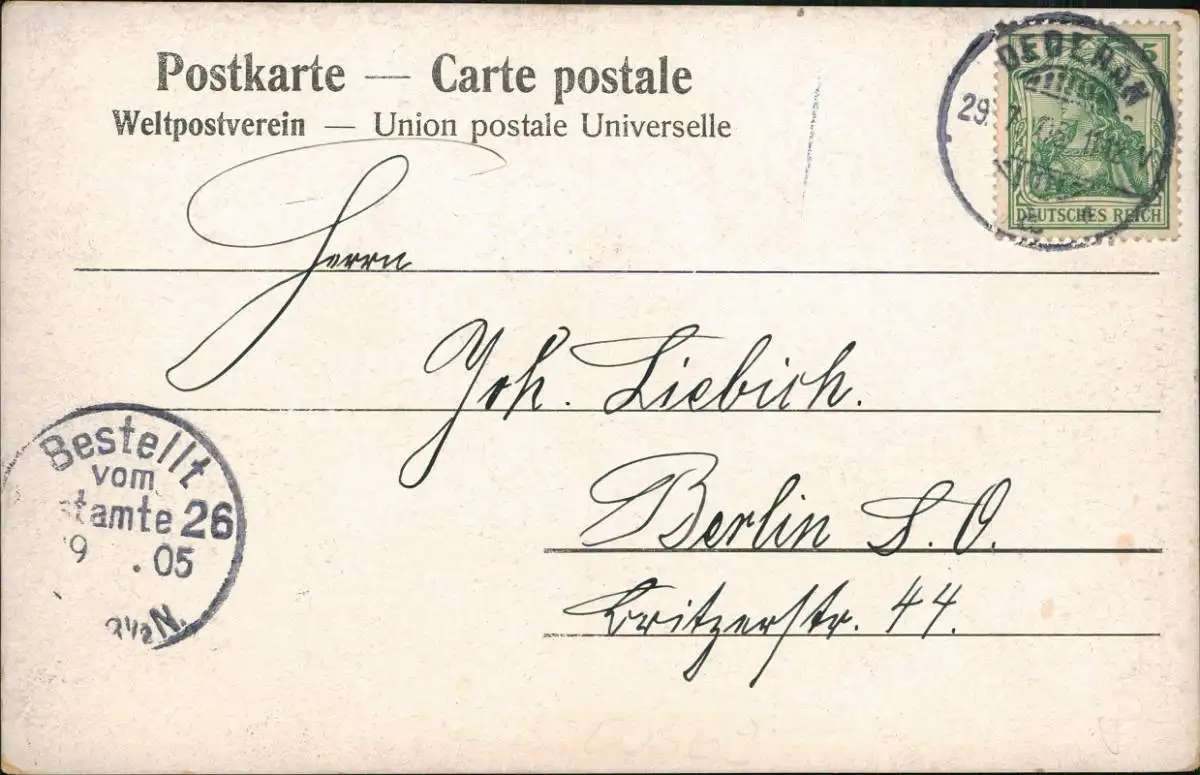 Postkarte — Carte postale
Weltpostverein — Union postale Universelle
OEDERAN
29. 7.
5
DEUTSCHES REICH
Herrn
Joh. Liebich.
Berlin S. O.
Britzerstr. 44.
Bestellt
vom
stamte 26
9 . 05
3½ N.